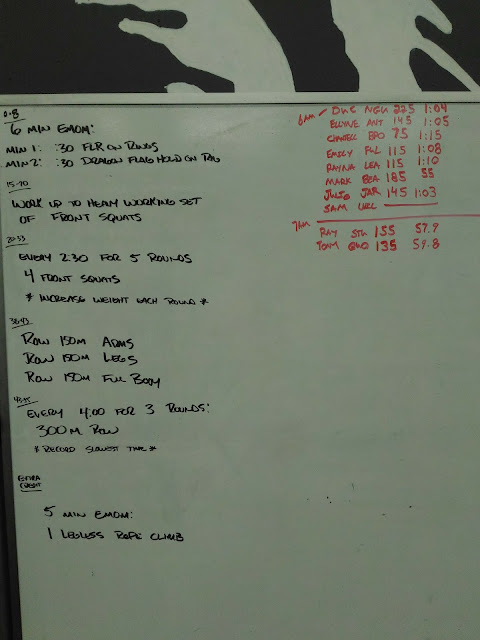 0-8
6 MIN EMOM:
MIN 1: :30 FLR ON RINGS
MIN 2: :30 DRAGON FLAG HOLD ON RIG
15-20
WORK UP TO HEAVY WORKING SET
OF FRONT SQUATS
20-33
EVERY 2:30 FOR 5 ROUNDS
4 FRONT SQUATS
* INCREASE WEIGHT EACH ROUND *
38-43
ROW 150M ARMS
ROW 150M LEGS
ROW 150M FULL BODY
EVERY 4:00 FOR 3 ROUNDS:
300M ROW
* RECORD SLOWEST TIME *
EXTRA
CREDIT
5 MIN EMOM:
1 LEGLESS ROPE CLIMB
6AM DUC NGU 225 1:04
ELLYNE ANT 145 1:05
CHANELL BPO 75 1:15
EMILY FUL 115 1:08
RAYNA LEA 115 1:10
MARK BEA 185 55
JULIO JAR 145 1:03
SAM
7AM RAY STU 155 57.9
TOM 135 59.8